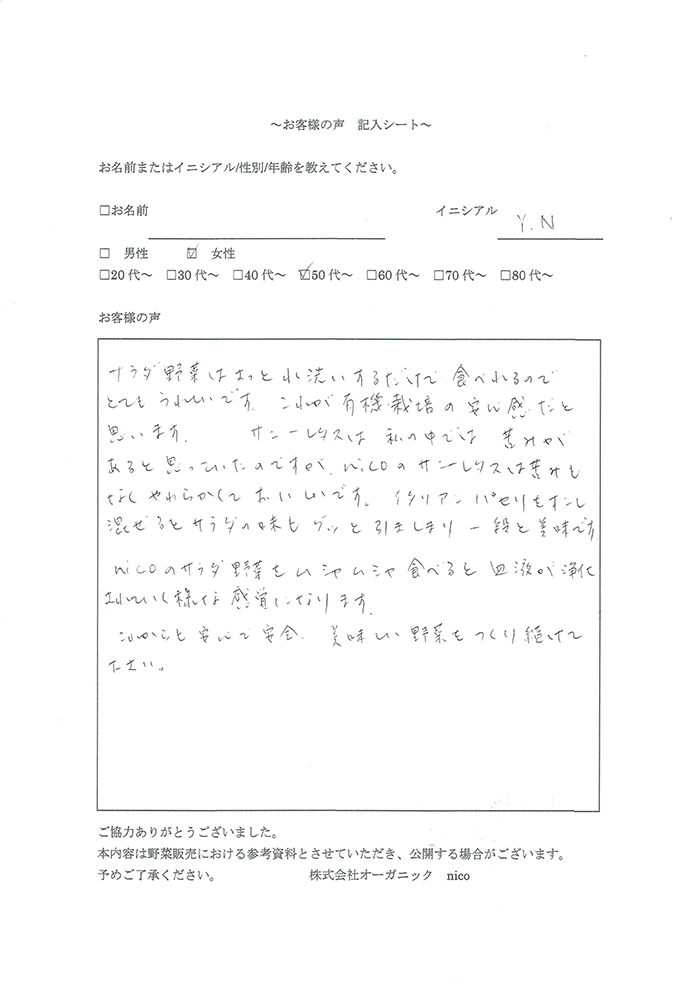 ～お客様の声　記入シート～
お名前またはイニシアル/性別/年齢を教えてください。
□お名前　イニシアル　Y.N
□　男性　☑　女性
□20代～　□30代～　□40代～　☑50代～　□60代～　□70代～　□80代～
お客様の声
サラダ野菜はさっと水洗いするだけで食べれるので
とてもうれしいです。これが有機栽培の安心感だと
思います。　サニーレタスは私の中では苦みが
あると思っていたのですが、nicoのサニーレタスは苦みも
なくやわらかくておいしいです。イタリアンパセリも少し
混ぜるとサラダの味もグッと引きしまり一段と美味です
nicoのサラダ野菜をムシャムシャ食べると血液が浄化
されていく様な感覚になります。
これからも安心で安全、美味しい野菜をつくり続けて
下さい。
ご協力ありがとうございました。
本内容は野菜販売における参考資料とさせていただき、公開する場合がございます。
予めご了承ください。　株式会社オーガニック　nico